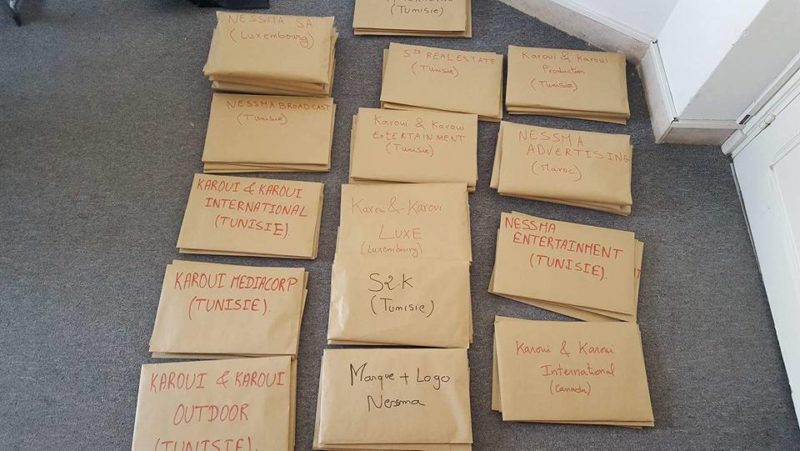 NESSMA SA
(Luxembourg)
NESSMA BROADCAST
(Tunisie)
KAROUI & KAROUI
INTERNATIONAL
(TUNISIE)
KAROUI MEDIACORP
(TUNISIE).
KAROUI & KAROUI
OUTDOOR
(TUNISIE).
(Tunisie)
REAL ESTATE
(Tunisie)
Karoui & Karoui
ENTERTAINMENT
(Tunisie)
Karoui & Karoui
LUXE
(Luxembourg)
S2K
(Tunisie)
Marque + Logo
Nessma
Karoui & Karoui
Production
(Tunisie)
NESSMA
ADVERTISING
(Maroc)
NESSMA
ENTERTAINMENT
(TUNISIE).
Karoui & Karoui
International
(Canada)